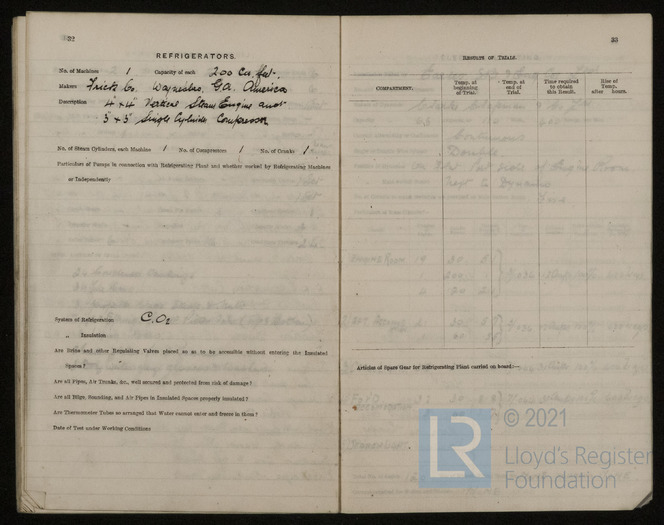 32
REFRIGERATORS.
No. of Machines 1 Capacity of each 200 Cu. feet.
Makers Fricks Co. Waynesbro, GA. America
Description 4" x 4" Vertical Steam Engine and
3" x 3" Single Cylinder Compressor
No. of Steam Cylinders, each Machine 1 No. of Compressors 1 No. of Cranks 1
Particulars of Pumps in connection with Refrigerating Plant and whether worked by Refrigerating Machines
or Independently
System of Refrigeration C.O2
" Insulation
Are Brine and other Regulating Valves placed so as to be accessible without entering the Insulated
Spaces?
Are all Pipes, Air Trunks, &c., well secured and protected from risk of damage?
Are all Bilge, Sounding, and Air Pipes in Insulated Spaces properly insulated?
Are Thermometer Tubes so arranged that Water cannot enter and freeze in them?
Date of Test under Working Conditions
33
RESULTS OF TRIALS.
COMPARTMENT.
Temp. at beginning of Trial.
Temp. at end of Trial.
Time required to obtain this Result.
Rise of Temp. after hours.
Articles of Spare Gear for Refrigerating Plant carried on board:—
LR
© 2021
Lloyd's Register
Foundation